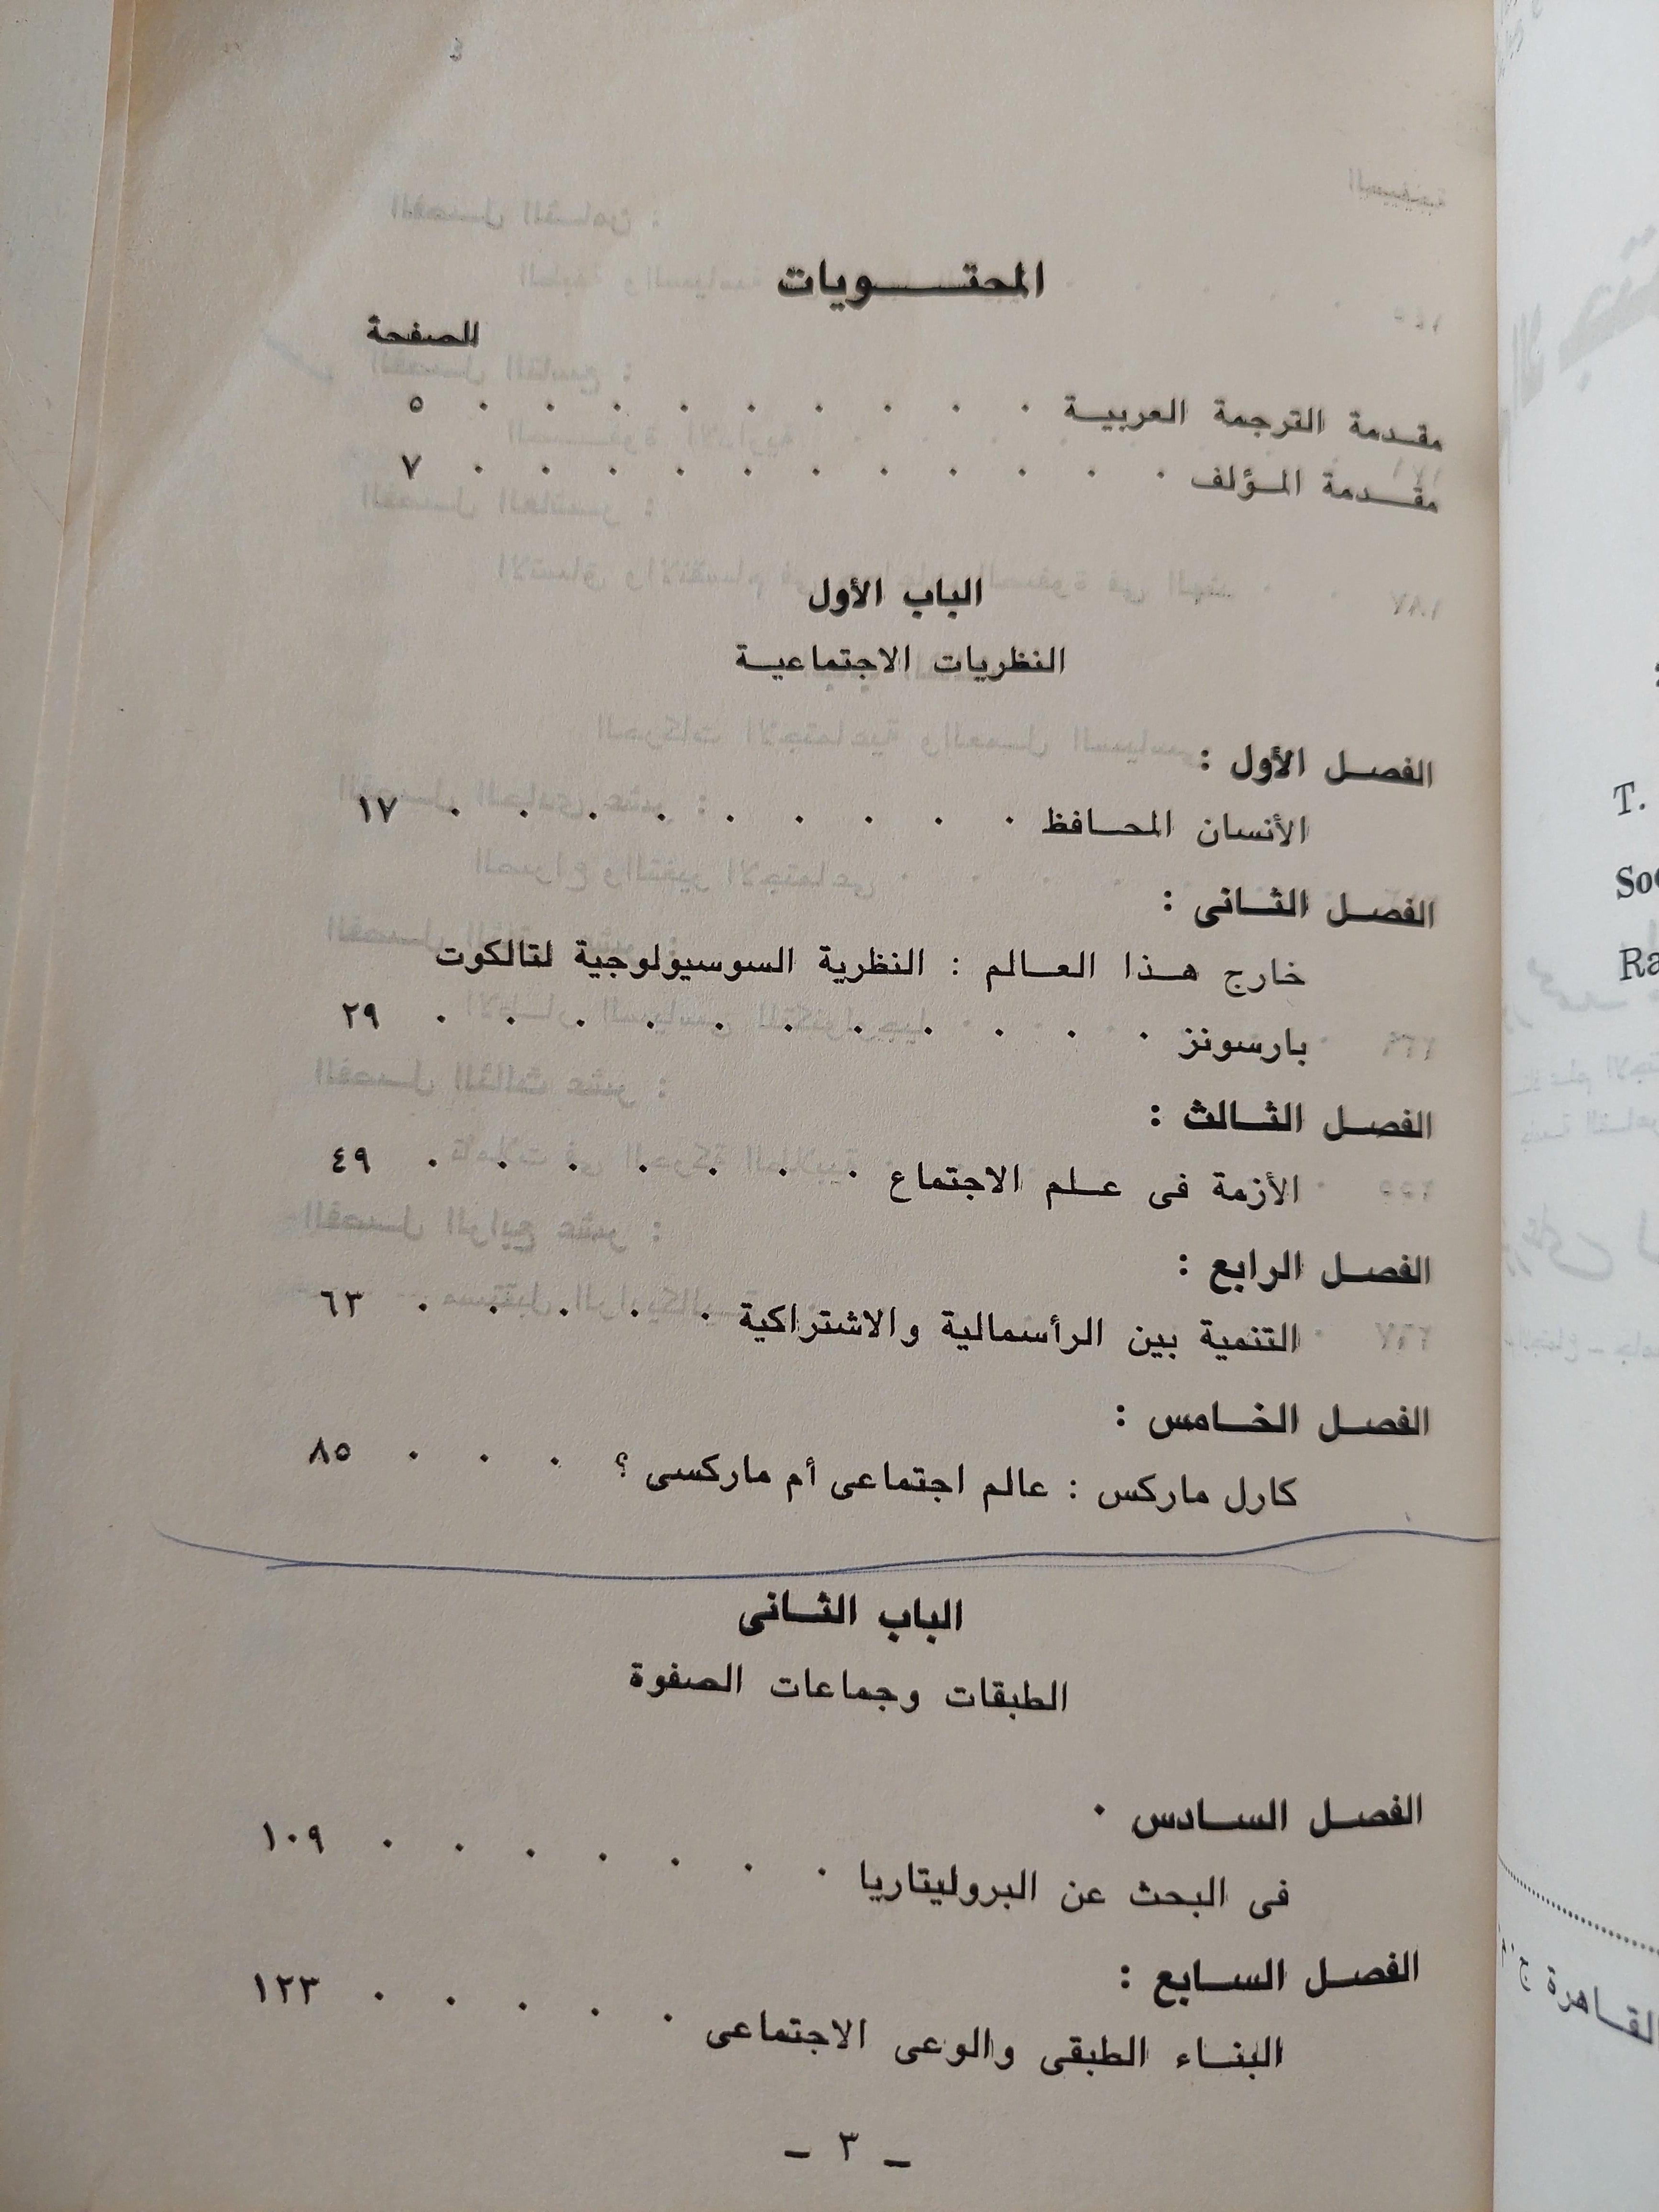 المحتـــويات
الصفحة
مقدمة الترجمة العربية . . . . . . . . . . ٥
مقدمة المؤلف . . . . . . . . . . . ٧
الباب الأول
النظريات الاجتماعية
الفصل الأول :
الأنسان المحافظ . . . . . . . . . ١٧
الفصل الثانى :
خارج هذا العالم : النظرية السوسيولوجية لتالكوت
بارسونز . . . . . . . . . . . ٢٩
الفصل الثالث :
الأزمة فى علم الاجتماع . . . . . . . ٤٩
الفصل الرابع :
التنمية بين الرأسمالية والاشتراكية . . . . . ٦٣
الفصل الخامس :
كارل ماركس : عالم اجتماعى أم ماركسى ؟ . . . ٨٥
الباب الثانى
الطبقات وجماعات الصفوة
الفصل السادس .
فى البحث عن البروليتاريا . . . . . . . ١٠٩
الفصل السابع :
البناء الطبقى والوعى الاجتماعى . . . . . ١٢٣
– ٣ –
T.